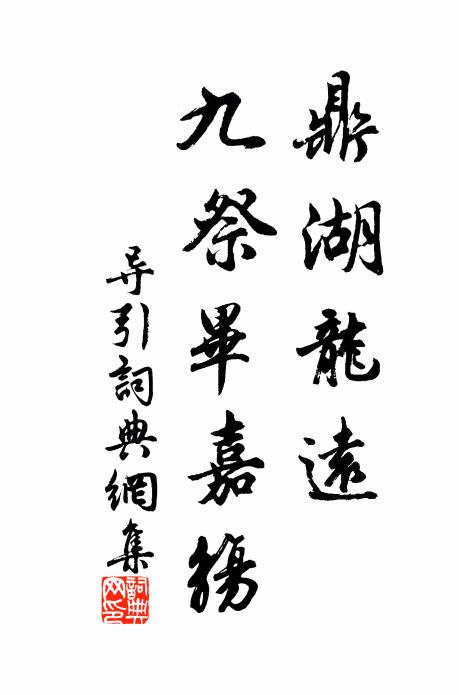 鼎湖龍遠
九祭畢嘉觴
导引詞典網集
詞典網印